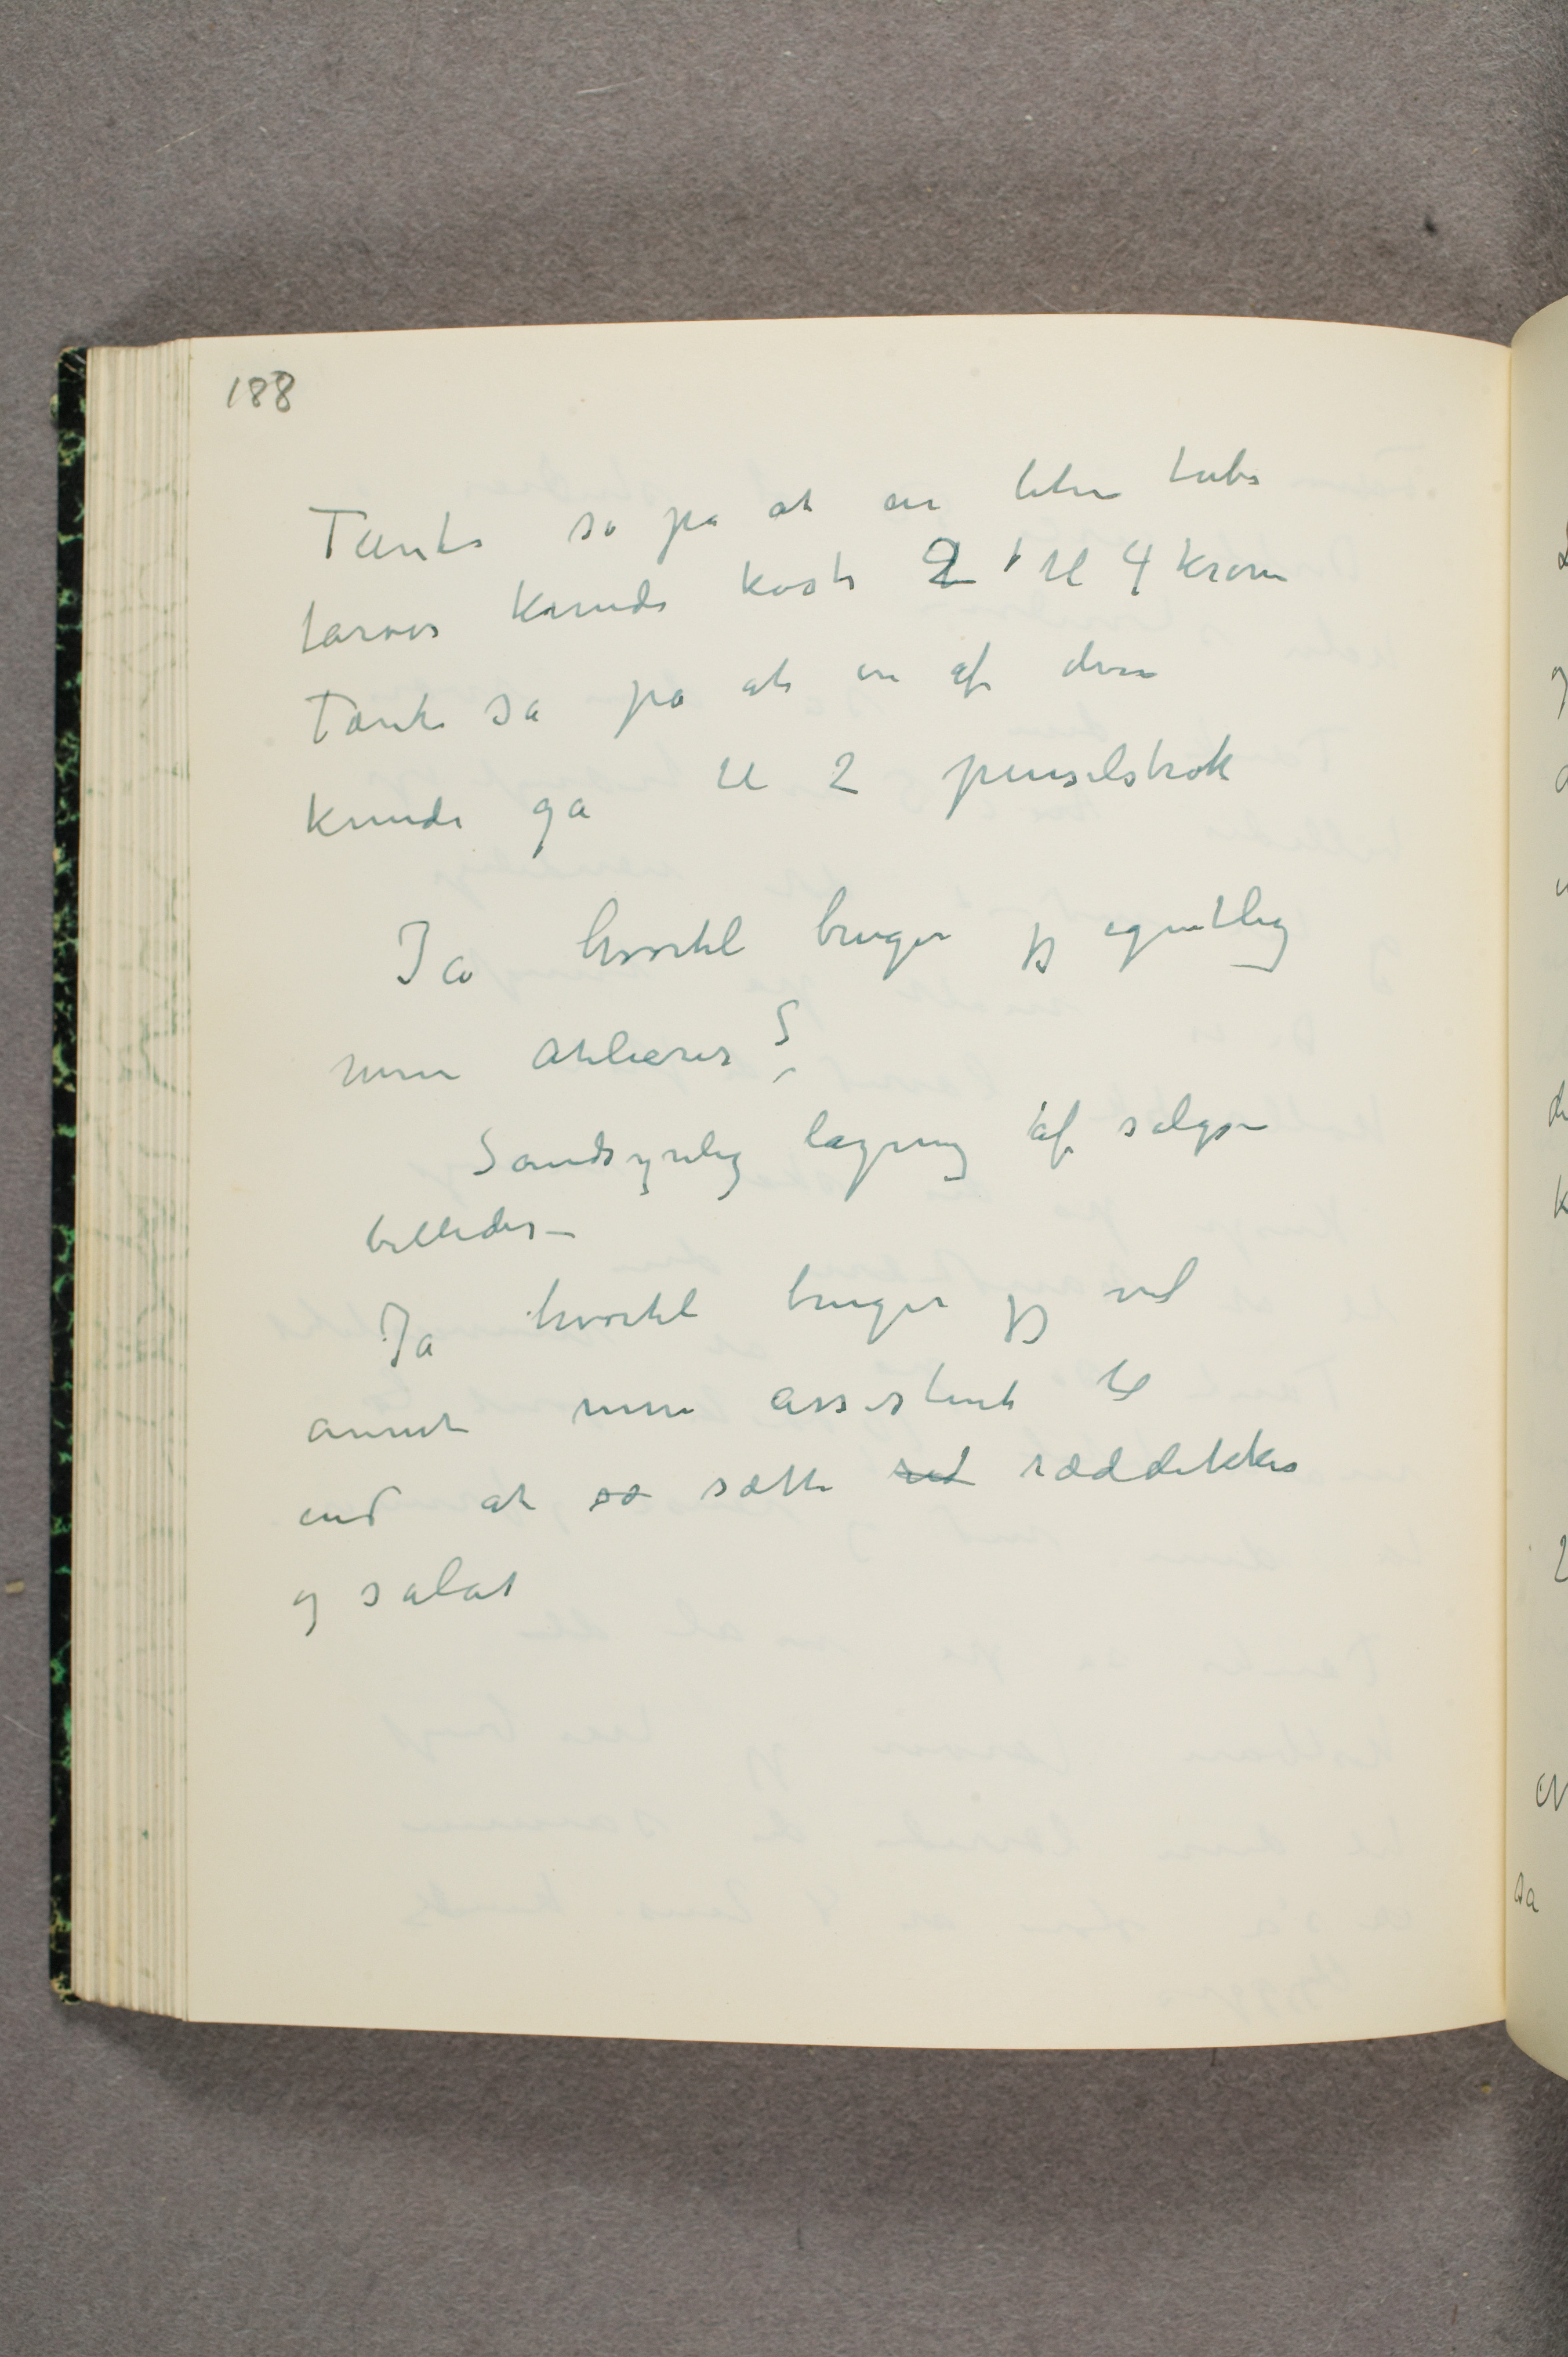 188
Tænkte så på at en liten tube
farver kunde koste 2 til 4 kroner
Tænkte så på at en af disse
kunde gå til 2 penselstrøk
Ja hvortil bruger jeg egentlig
mine atelierer?
Sandsynlig lagring af salgs-
billeder –
Ja hvortil bruger jeg vel
annet mine assistenter til
end at så sætte red ræddikker
og salat